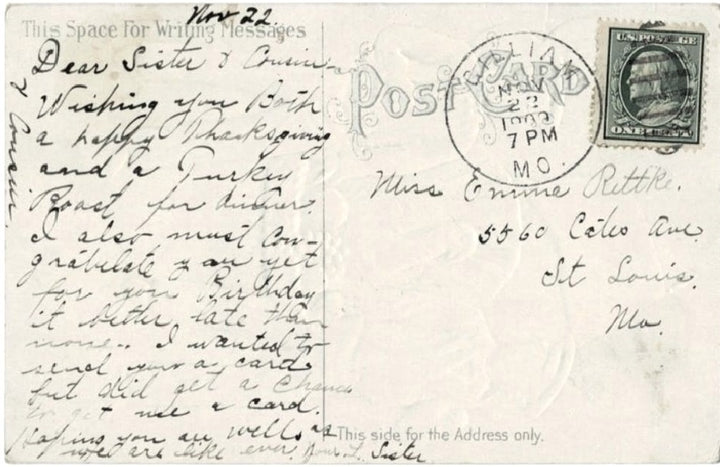 Nov 22.
This Space For Writing Messages
Dear Sister & Cousin
Wishing you Both
a happy Thanksgiving
and a Turkey
Roast for dinner.
I also must Con-
gratulate you yet
for your Birthday
it better late than
none.. I wanted to
send you a card
but did get a Chance
to get me a card.
Hoping you are well as
we are like ever Your L. Sister
& Cousin.
POST CARD
NOV
22
7 PM
MO.
U.S. POSTAGE
ONE CENT
Miss Emma Rettke.
5560 Cates Ave.
St Louis.
Mo.
This side for the Address only.